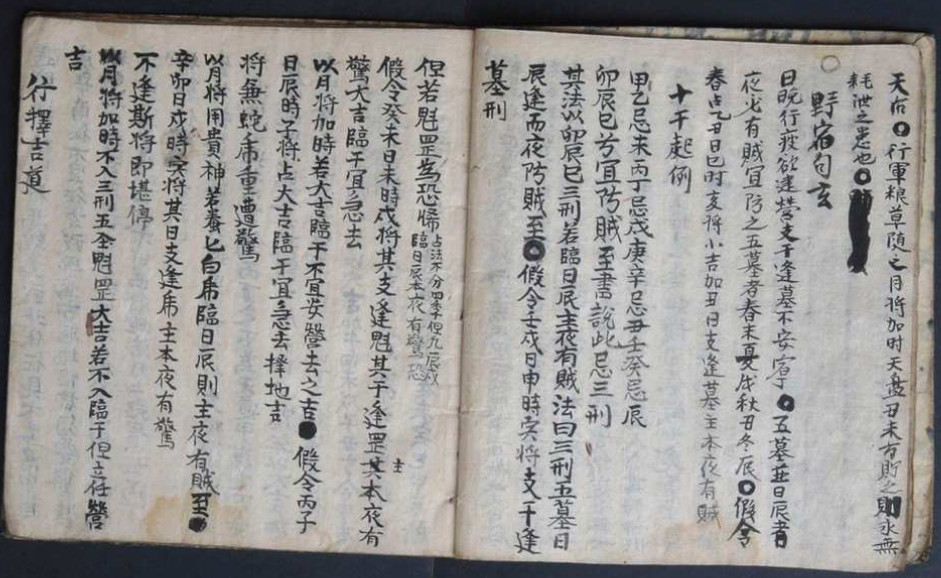 天右〇行軍粮草随之月将加时天盘丑未右貯之則永無
耗泄之患也〇
〇
野宿句玄
日晚行疫欲達塋支干逢墓不安寧〇五墓並日辰者
夜必有賊宜防之五墓者春末夏戌秋丑冬辰〇假令
春占乙丑日巳时亥将小吉加丑日支逢墓主本夜有賊
十干起例
甲乙忌未丙丁忌戌庚辛忌丑壬癸忌辰
卯辰巳兮宜防賊至書說此忌三刑
其法以卯辰巳三刑若臨日辰主夜有賊法曰三刑五墓日
辰逢而夜防賊至〇假令壬戌日申時寅将支干逢
墓刑
但若魁罡為恐怖占法不分四季但九辰戌
臨日辰本夜有驚恐
假令癸未日未時戌将其支逢魁其干逢罡其主本夜有
驚大吉臨干宜急去
以月将加時若大吉臨干不宜安營去之吉 假令丙子
日辰時子将占大吉臨干宜急去擇地吉
将無蛇虎重遭驚
以月将用貴神若螣匕白虎臨日辰則主夜有賊至
辛卯日戌時寅将其日支逢虎主本夜有驚
不逢斯将即堪停
以月将加時不入三刑五全魁罡大吉若不入臨干但立任營
吉
行擇吉道